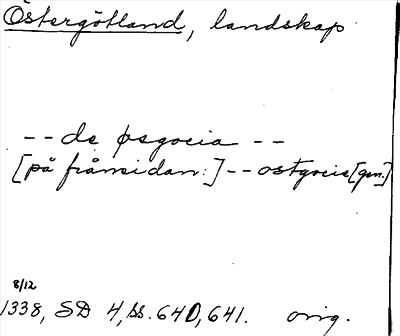 Östergötland, landskap
-- de øsgocia --
[på frånsidan:] -- ostgocie [gen.]
8/12
1338, SD 4, ss. 640, 641. orig.